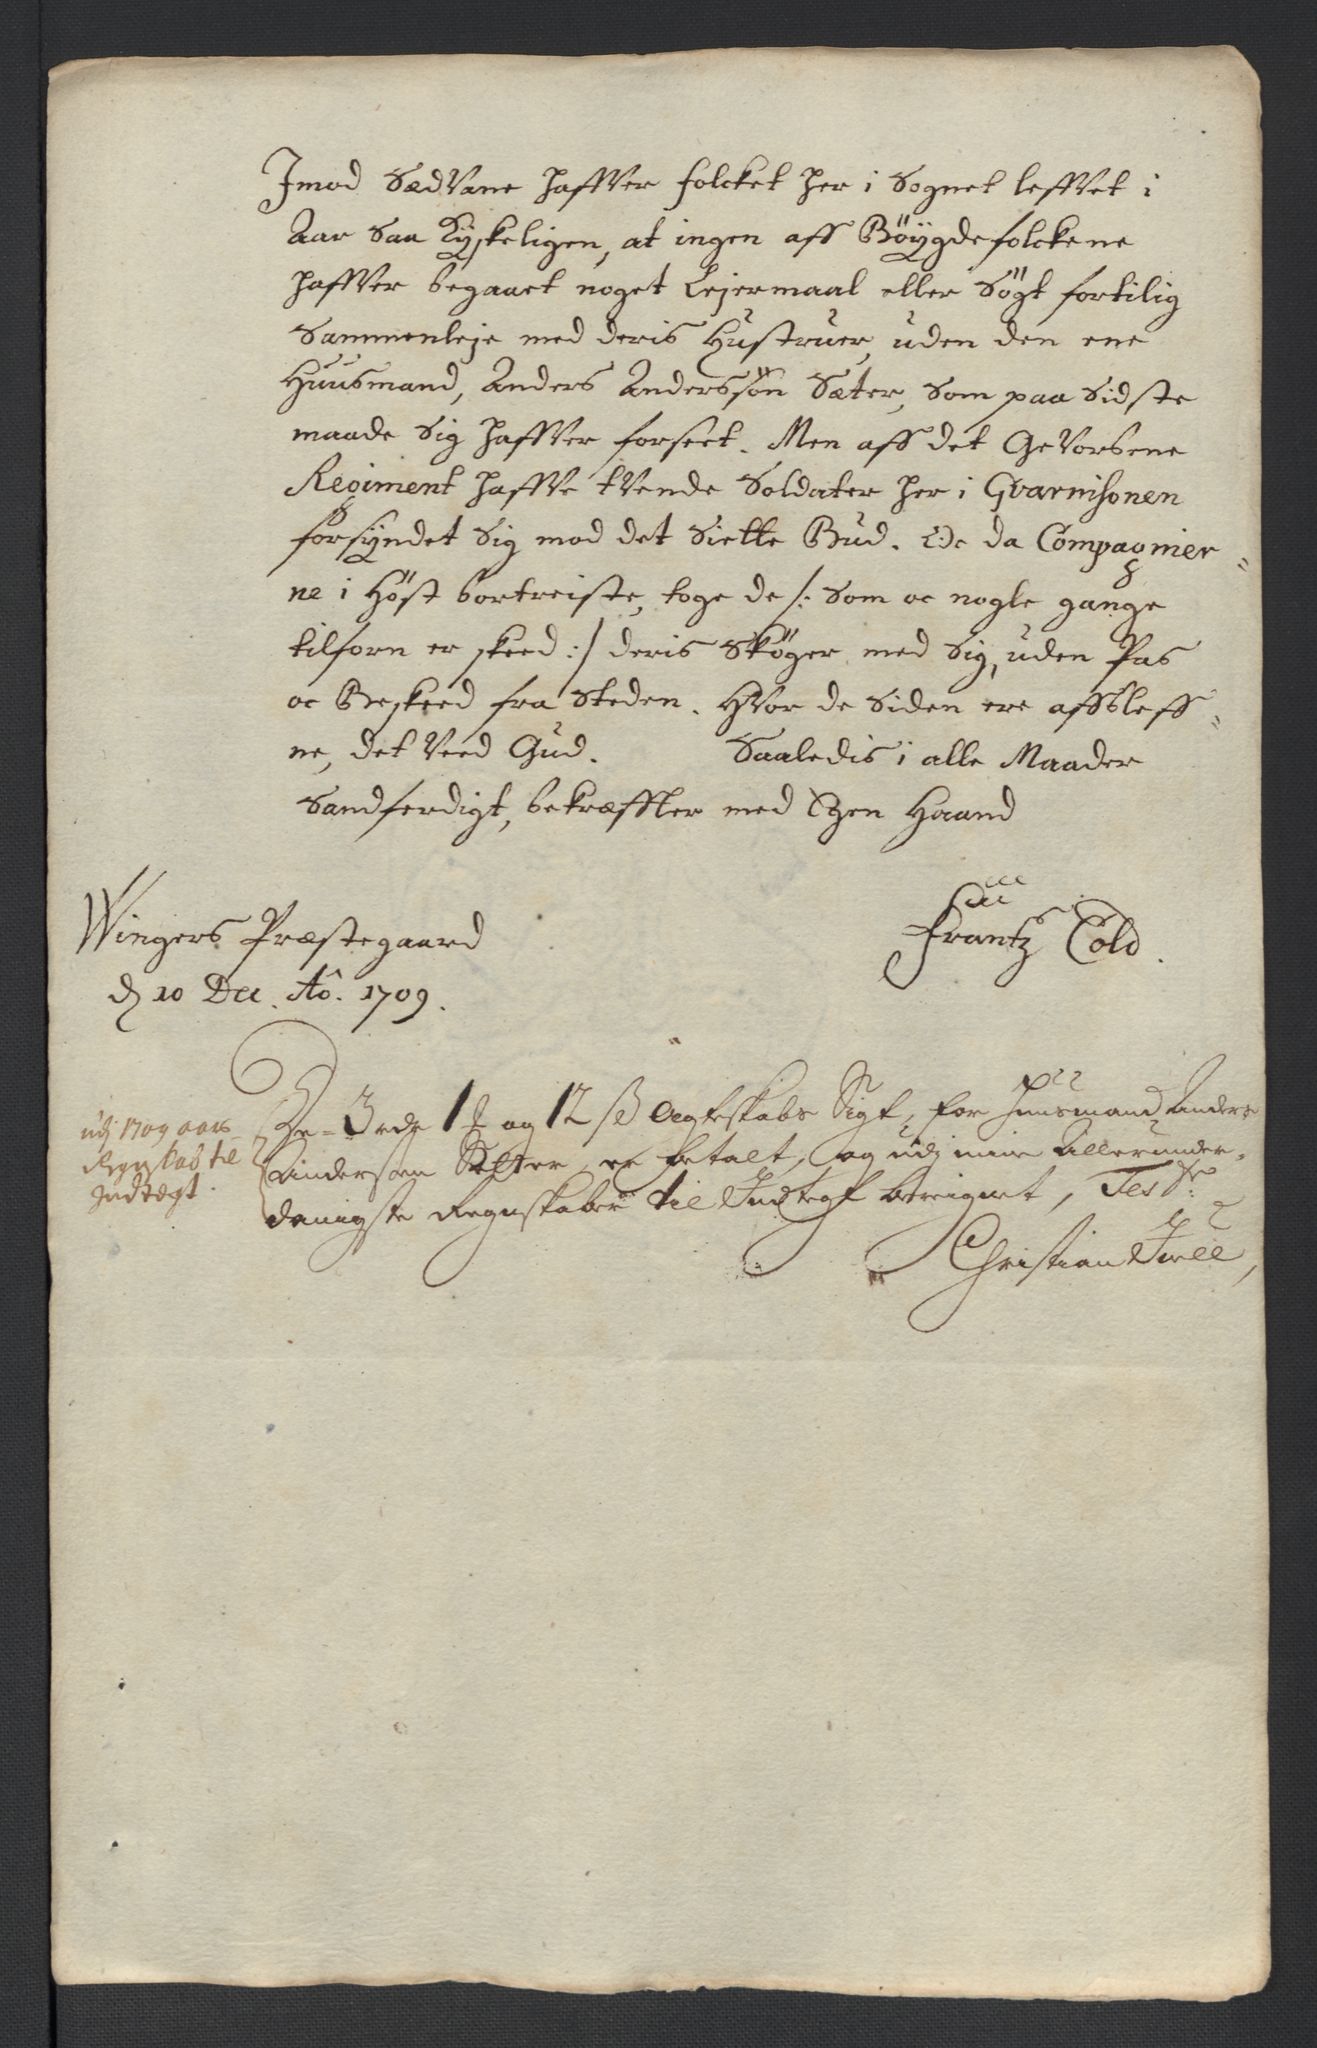 Imod Sædvane haffver folcket her i Sognet leffvet i
Aar saa kyskeligen, at ingen aff Böygdefolckene
haffver begaaet noget Lejermaal eller Sögt fortilig
Sammenleje med deris Hustruer, uden den ene
Huusmand, Anders Anderssön Sæter, Som paa Sidste
maade Sig haffver forseet. Men aff det Gevorbene
Regiment haffve tvende Soldater her i Gvarnisonen
forsyndet Sig mod det Siette Bud. Oc da Compagnier-
ne i Höst bortreiste, toge de /: Som oc nogle gange
tilforn er skeed :/ deris Skøger med Sig, uden Pas
oc Beskeed fra Steden. Hvor de Siden ere affbleff-
ne, det veed Gud. Saaledis i alle Maader
Sandferdigt, bekræffter med Egen Haand
Wingers Præstegaard
d 10 Dec. Ao. 1709.
Frantz Cold.
udj 1709 aars
Regnskab til
Indtegt.
1 og 12 ß Ægteskabs Sigt, for Huusmand Anders
Andersøn Setter, er betalt, og udj mine Allerunder-
danigste Regnskaber til Indtegt beregnet, Test:
Christian